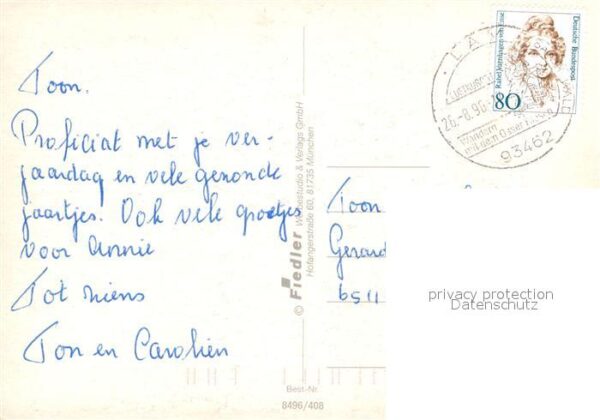 Toon.
Proficiat met je ver-
jaardag en vele gezonde
jaartjes. Ook vele groetjes
voor Annie
Tot ziens
Ton en Carolien
© Fiedler Werbestudio & Verlags GmbH
Hofangerstraße 60, 81735 München
Best-Nr.
8496/408
Deutsche Bundespost
Rahel Varnhagen von Ense
80
LA
26.-8.96
Wandern
mit dem Osser
93462
Toon
Gerard
6511
privacy protection
Datenschutz